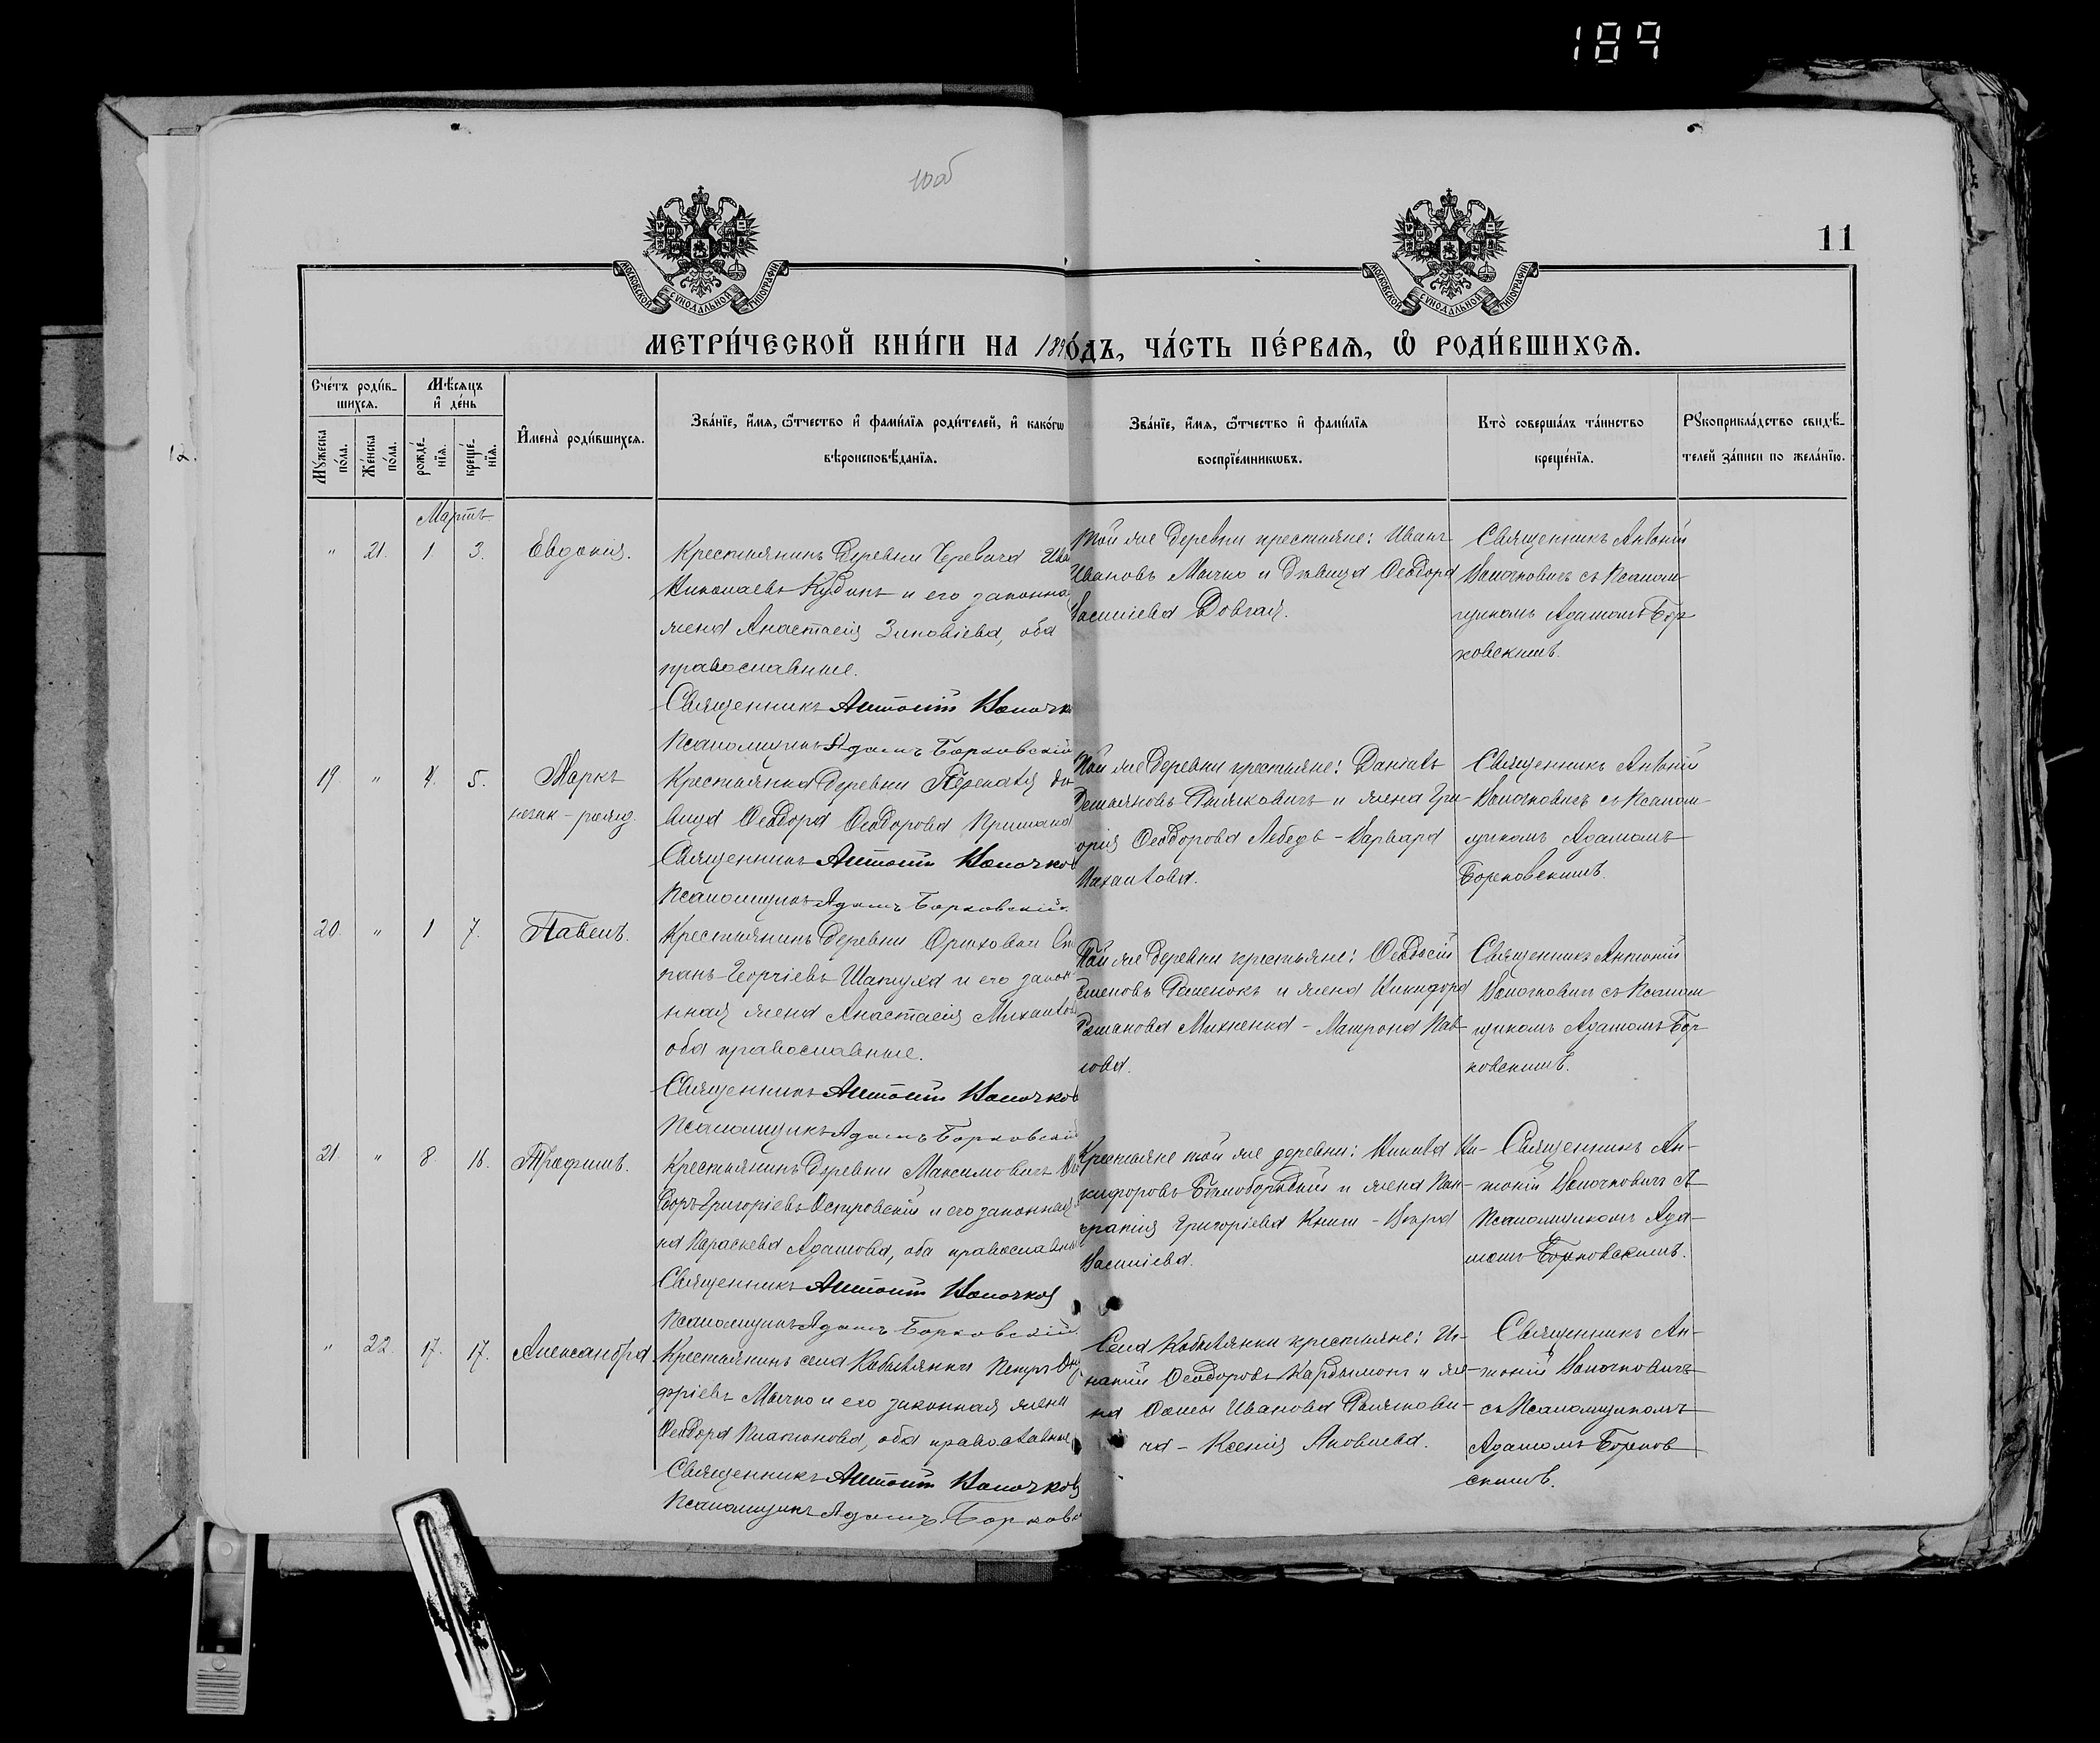 189
10об
11
12.
МОСКОВСКОЙ СУНОДАЛЬНОЙ ТИПОГРАФІИ
МОСКОВСКОЙ СУНОДАЛЬНОЙ ТИПОГРАФІИ
МЕТРИ́ЧЕСКОЙ КНИ́ГИ НА 189 О́ДЪ, ЧА́СТЬ ПЕ́РВАѦ, Ѡ҆ РОДИ́ВШИХСѦ.
Сче́тъ роди́в-
шихсѧ.
Мѣ́сѧцъ
и҆ де́нь
Мꙋ́жеска по́ла.
Же́нска по́ла.
рожде́-нїѧ.
креще́-нїѧ.
И҆мена̀ роди́вшихсѧ.
Зва́нїе, и҆́мѧ, ѻ҆́тчество и҆ фами́лїѧ роди́телей, и҆ како́гѡ
вѣроисповѣ́данїѧ.
Зва́нїе, и҆́мѧ, ѻ҆́тчество и҆ фами́лїѧ
воспрїе́мникѡвъ.
Кто̀ соверша́лъ та́инство
креще́нїѧ.
Рꙋкоприкла́дство свидѣ́-
телей за́писи по жела́нїю.
Мартъ
" 21. 1 3. Евдокія.
Крестьянинъ деревни Черевача Ива
Николаевъ Кудинъ и его законна
жена Анастасія Зиновіева, оба
православные.
Священникъ Антоній Волочк
Псаломщикъ Адамъ Борковскій
Той же деревни крестьяне: Иванъ
Ивановъ Мычко и дѣвица Ѳеодора
Василіева Довгая.
Священникъ Антоній
Волочковичъ съ Псалом-
щикомъ Адамомъ Бор
ковскимъ.
19. " 4. 5. Маркъ
незак-рожд.
Крестьянка деревни дѣ-
вица Ѳеодора Ѳеодорова
Священникъ Антоній Волочков
Псаломщикъ Адамъ Борковскій.
Той же деревни крестьяне: Даніилъ
Демьяновъ и жена Гри-
горія Ѳеодорова Лебедь - Варвара
Михаилова.
Священникъ Антоній
Волочковичъ съ Псалом-
щикомъ Адамомъ
Борковскимъ
20. " 1 7. Павелъ.
Крестьянинъ деревни
Георгіевъ Шапуха и его закон
нная жена Анастасія Михаилов
оба православные.
Священникъ Антоній Волочков
Псаломщикъ Адамъ Борковскій
Той же деревни крестьяне: Ѳеодосій
Семеновъ и жена Никифора
Романова Михненка - Матрона Пав
лова.
Священникъ Антоній
Волочковичъ съ Псалом
щикомъ Адамомъ Бор-
ковскимъ.
21. " 8. 16. Трофимъ.
Крестьянинъ деревни Максимовичъ Ѳео
доръ Григоріевъ Островскій и его законная
на Параскева Адамова, оба православны
Священникъ Антоній Волочков
Псаломщикъ Адамъ Борковскій.
Крестьяне той же деревни: Никита Ни-
кифоровъ и жена Пан-
кратія Григоріева Книш - Вѣра
Василіева.
Священникъ Ан-
тоній Волочковичъ съ
Псаломщикомъ Ада-
момъ Борковскимъ.
" 22. 17. 17. Александра
Крестьянинъ села Кобылянки Петръ Ону
фріевъ Мычко и его законная жена
Ѳеодора Платонова, оба православные
Священникъ Антоній Волочков
Псаломщикъ Адамъ Борковс
Села Кобылянки крестьяне: Иг-
натій Ѳеодоровъ Кардымонъ и же-
на Ѳомы Иванова
ча - Ксенія Яковлева.
Священникъ Ан-
тоній Волочковичъ
съ Псаломщикомъ
Адамомъ Борков
скимъ.